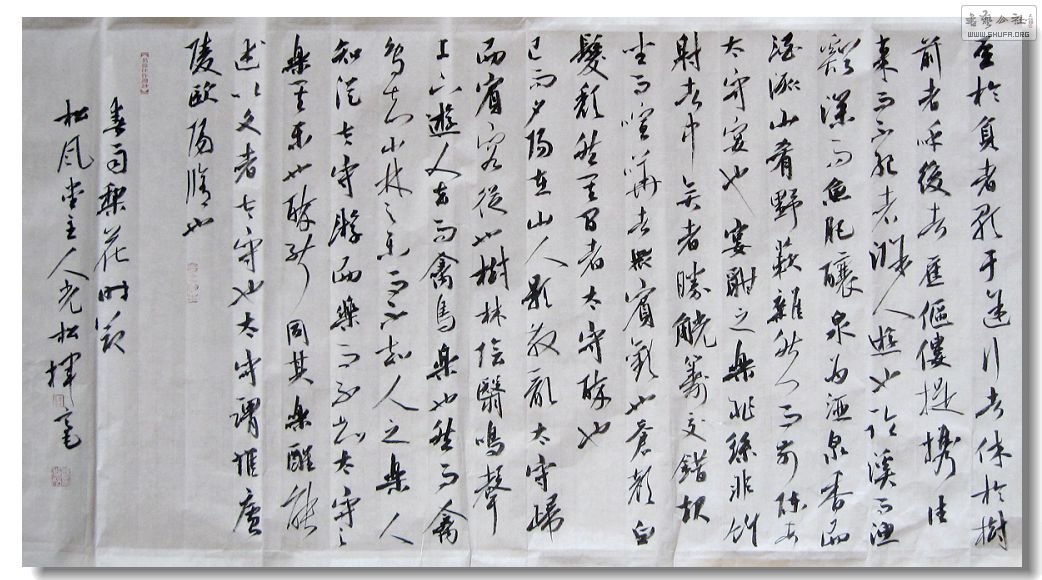 至於負者歌于途行者休於樹
前者呼後者應傴僂提攜往
來而不絕者滁人遊也臨溪而漁
谿深而魚肥釀泉為酒泉香而
酒洌山肴野蔌雜然而前陳者
太守宴也宴酣之樂非絲非竹
射者中弈者勝觥籌交錯起
坐而喧嘩者衆賓歡也蒼顏白
髮頹然其間者太守醉也
已而夕陽在山人影散亂太守歸
而賓客從也樹林陰翳鳴聲
上下遊人去而禽鳥樂也然而禽
鳥知山林之樂而不知人之樂人
知從太守遊而樂而不知太守之
樂其樂也醉能同其樂醒能
述以文者太守也太守謂誰廬
陵歐陽脩也
春雨梨花時節
松風堂主人光松揮毫
書藝公社
WWW.SHUFA.ORG